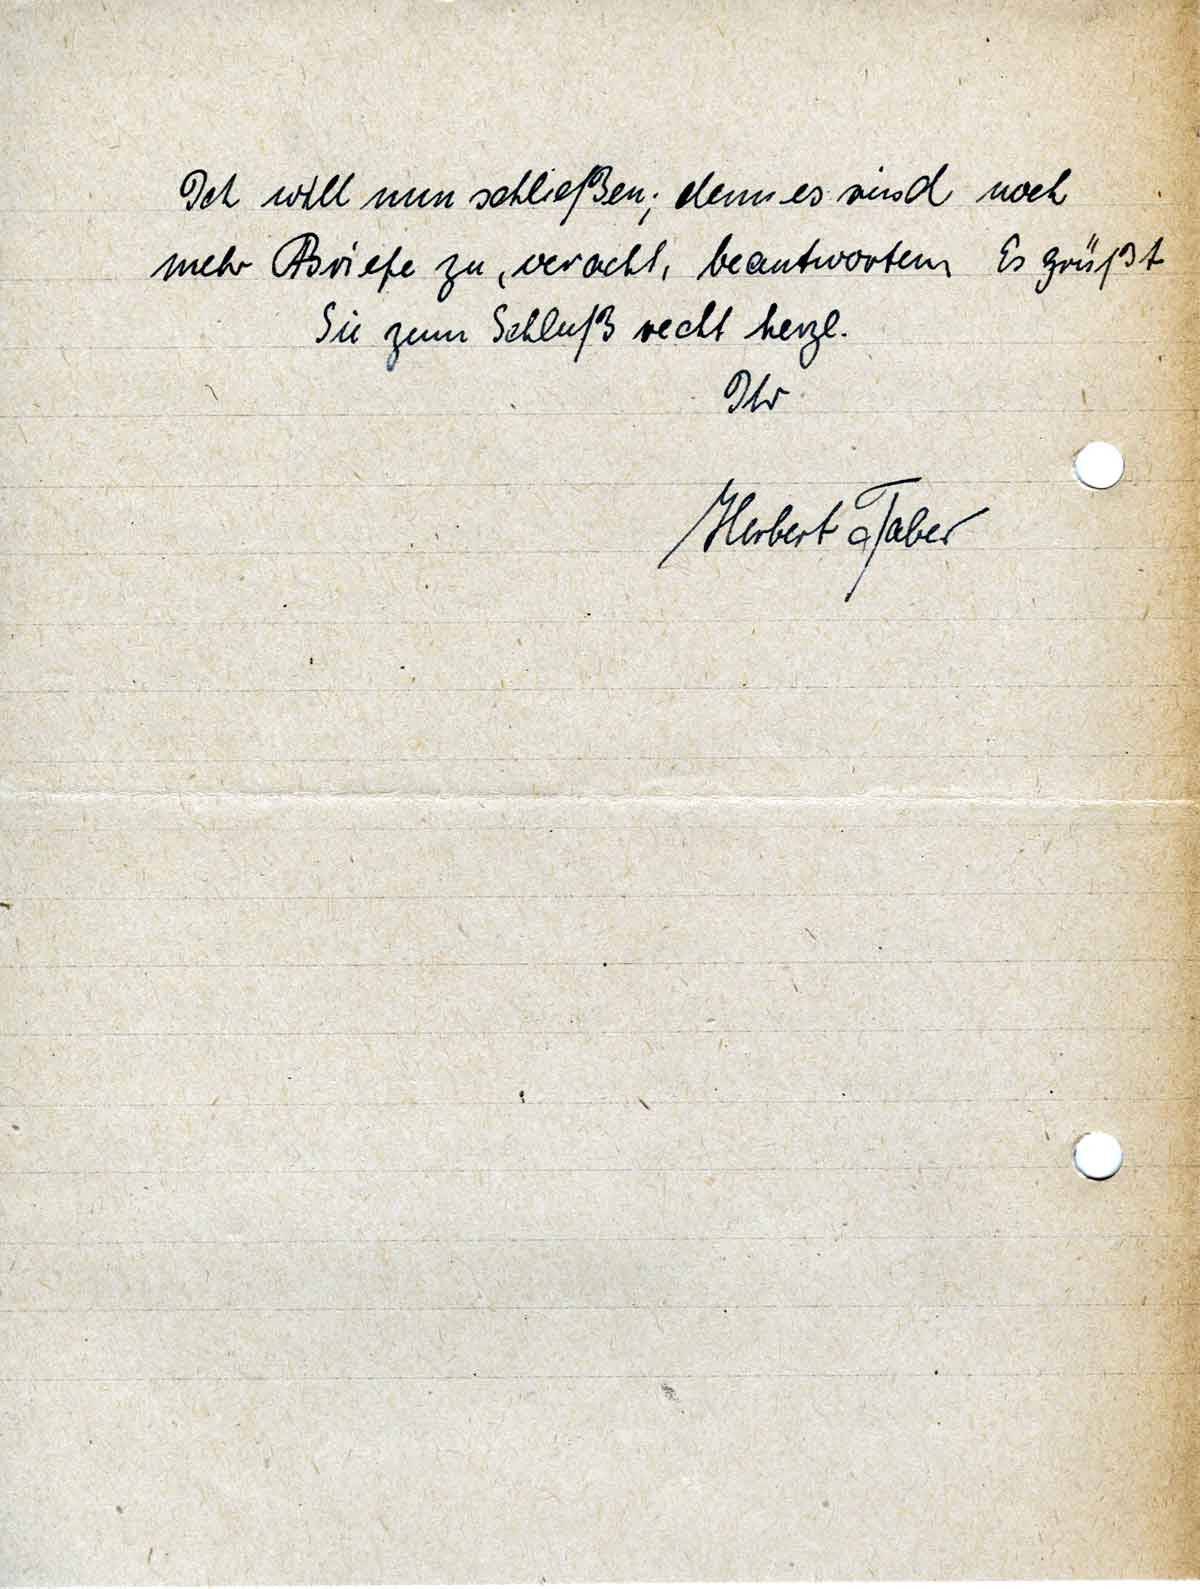 Ich will nun schließen; denn es sind noch
mehr Briefe zu, veracht, beantworten Es grüßt
Sie zum Schluß recht herzl.
Ihr
Herbert Faber